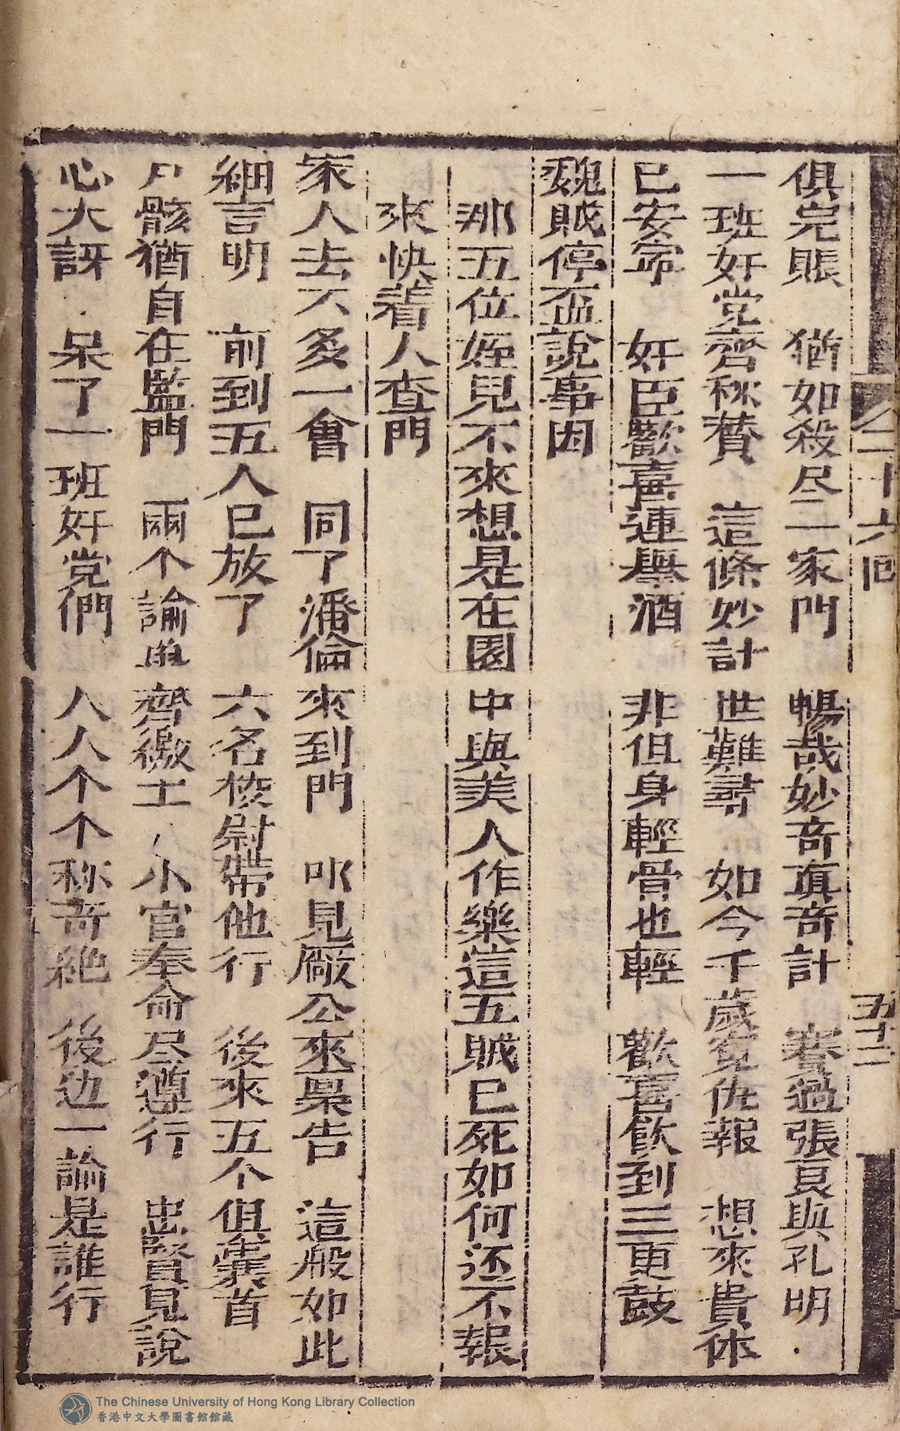 卷二十六回 五十二
俱完賬 猶如殺尽二家門 暢哉妙奇真奇計 賽過張良與孔明
一班奸党齊称賛 這條妙計世難尋 如今千歲寃仇報 想來貴体
已安寕 奸臣歡喜連舉酒 非但身輕骨也輕 歡喜飲到三更鼓
魏賊停盃說事因
那五位姪兒不來想是在園中與美人作樂這五賊已死如何还不報
來快着人查門
家人去不多一會 同了潘倫來到門 叩見厰公來禀告 這般如此
細言明 前到五人已放了 六名校尉帶他行 後來五个但囊首
尸骸猶自在監門 兩个諭 齊繳上 小官奉命尽遵行 忠賢見說
心大訝 呆了一班奸党們 人人个个称奇絶 後边一諭是誰行
The Chinese University of Hong Kong Library Collection
香港中文大學圖書館館藏